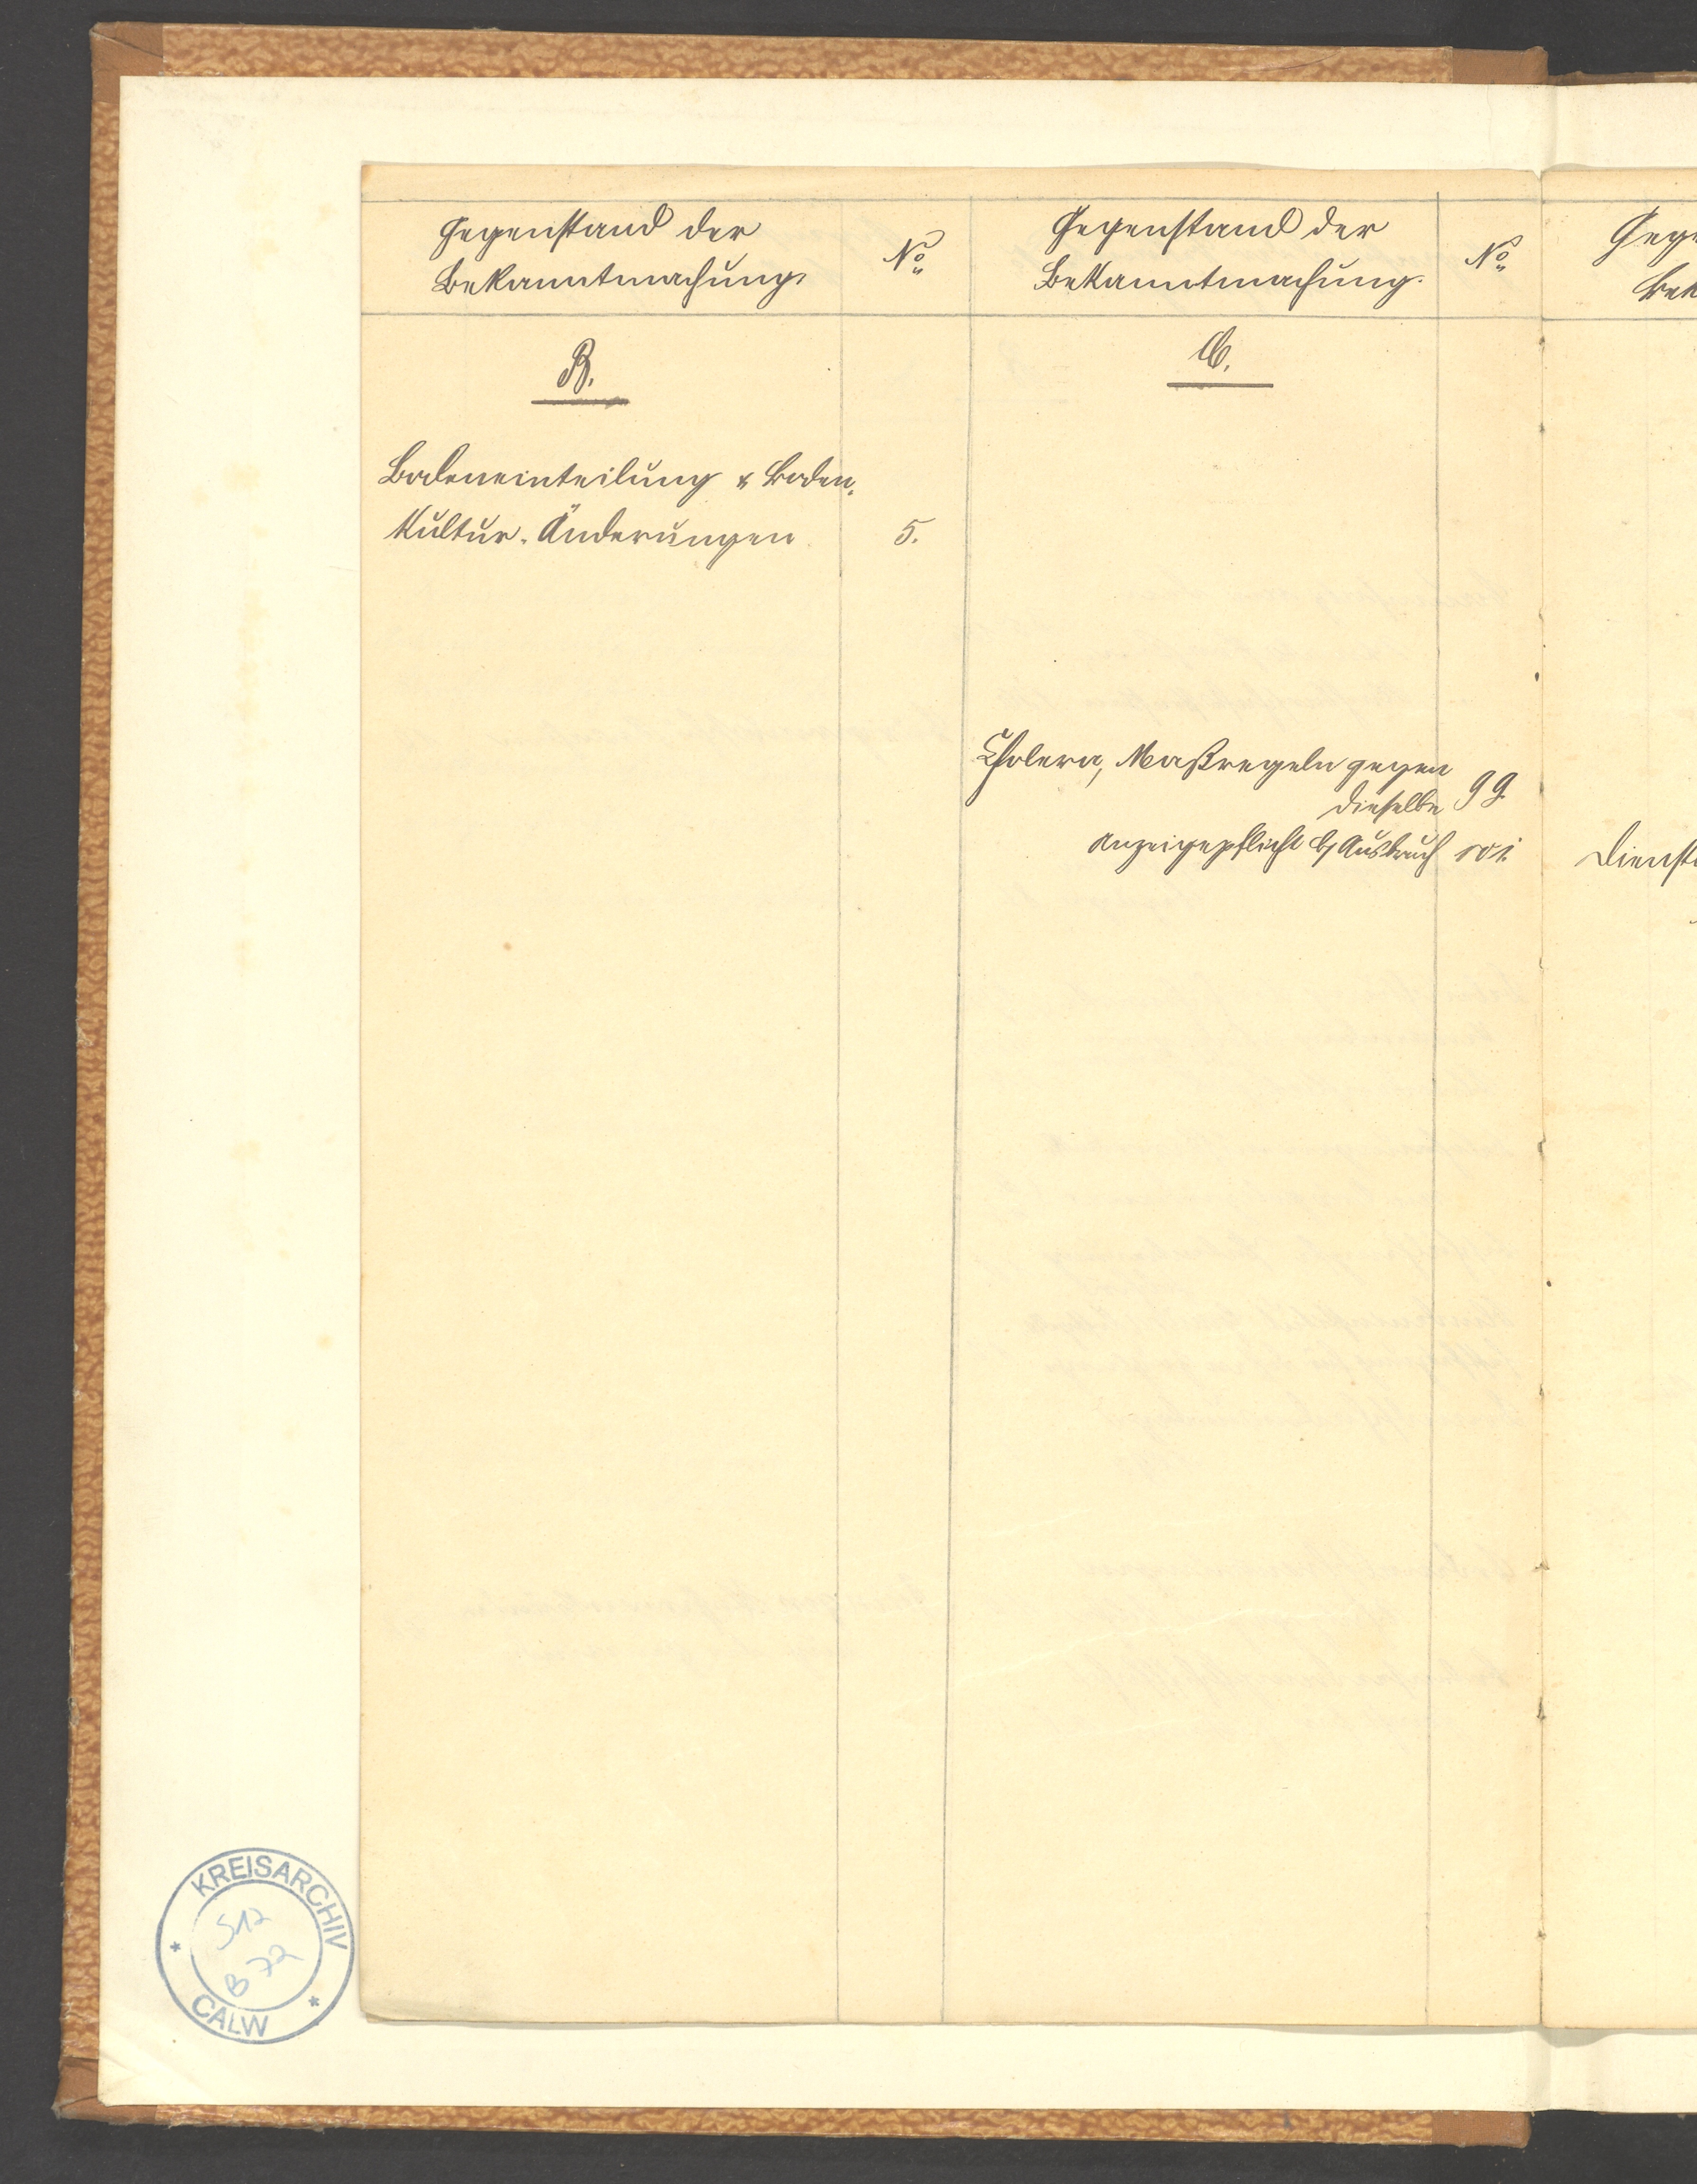 Gegenstand der
Bekanntmachung.
No
Gegenstand der
Bekanntmachung.
No
B.
C.
Bodeneinteilung & Boden-
Kultur-Änderungen 5.
Cholera, Maßregeln gegen
dieselbe 99
Anzeigepflicht b/ Ausbruch 101.
Dienst
KREISARCHIV
S12
B 72
CALW